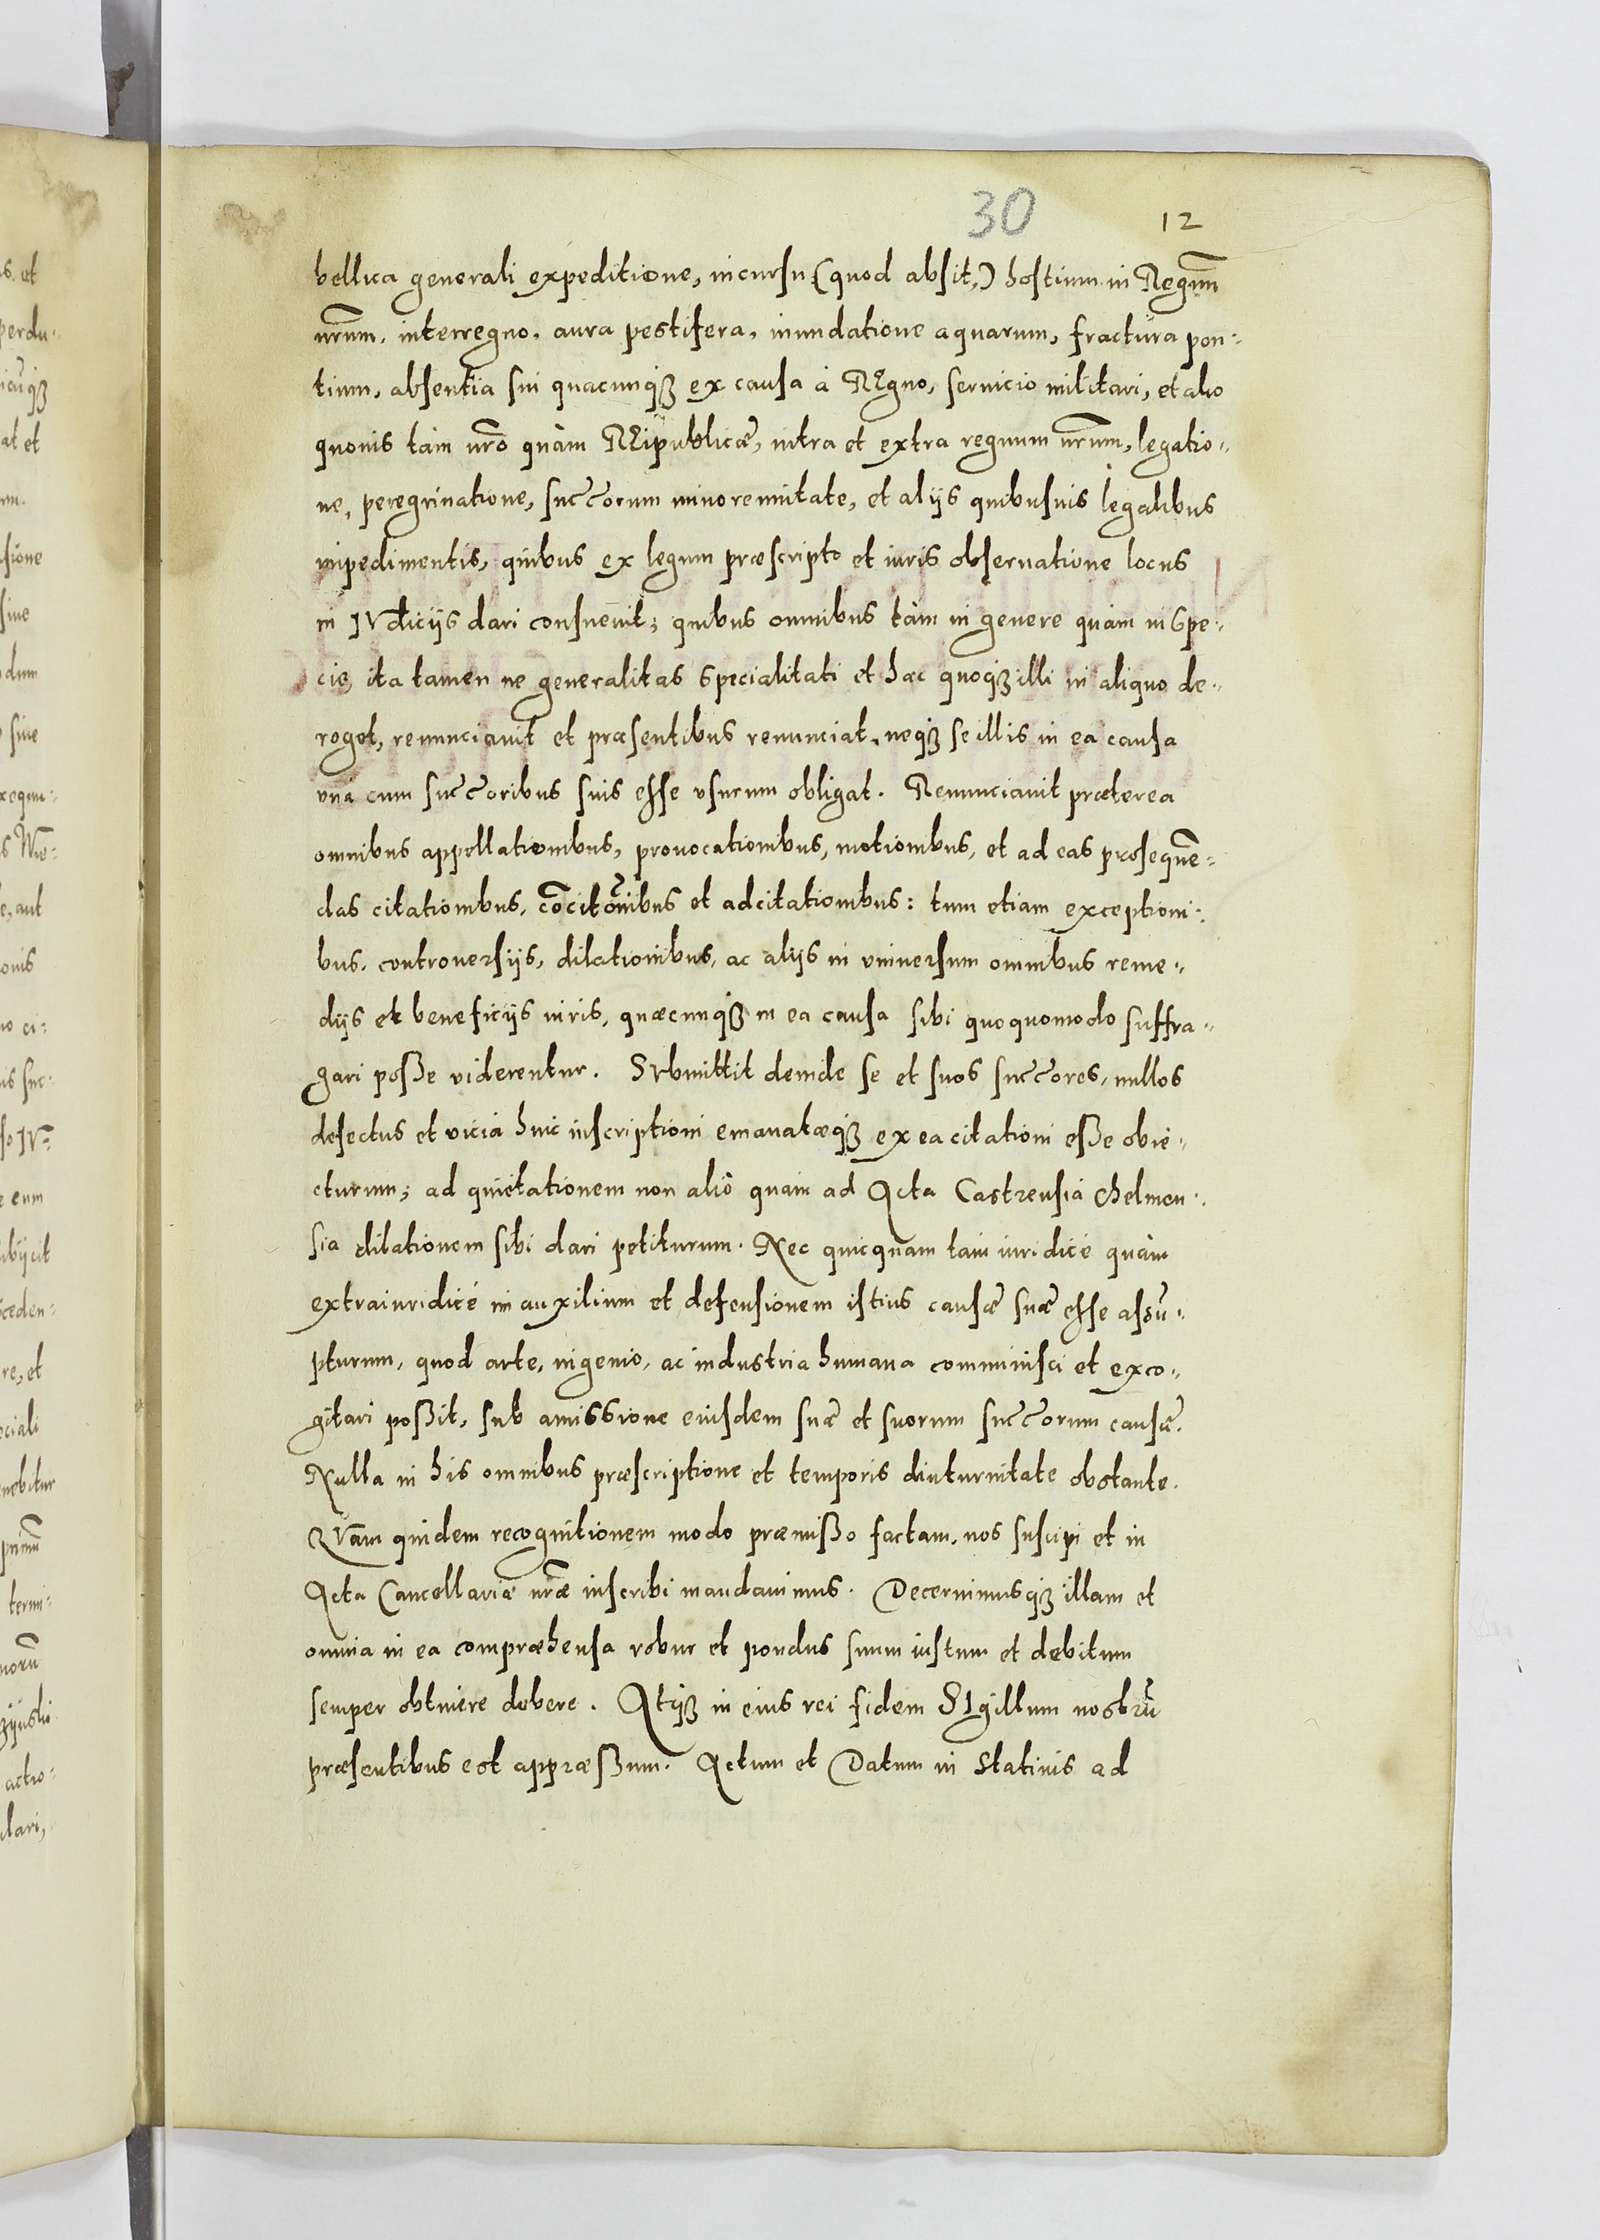 30 12
bellica generali expeditione, incursu (quod absit,) hostium in Regnũ
nrũm, interregno, aura pestifera, inundatione aquarum, fractura pon-
tium, absentia sui quacunqȝ ex causa à REgno, seruicio militari, et alio
quouis tàm nrõ quàm REipublicæ, intra et extra regnum nrũm, legatio-
ne, peregrinatione, succorum minorennitate, et alijs quibusuis legalibus
impedimentis, quibus ex legum præscripto et iuris obseruatione locus
in IVdicijs dari consueuit; quibus omnibus tàm in genere quàm in spe-
cie, ita tamen ne generalitas specialitati et hæc quoqȝ illi in aliquo de-
roget, renunciauit et præsentibus renunciat, neqȝ se illis in ea causa
vnà cum succoribus suis esse vsurum obligat. Renunciauit præterea
omnibus appellationibus, prouocationibus, motionibus, et ad eas prosequẽ-
das citationibus, cõcitõnibus et adcitationibus: tum etiam exceptioni-
bus, controuersijs, dilationibus, ac alijs in vniuersum omnibus reme-
dijs et beneficijs iuris, quæcunqȝ in ea causa sibi quoquomodo suffra-
gari poße viderentur. SVbmittit deinde se et suos succores, nullos
defectus et vicia huic inscriptioni emanatæqȝ ex ea citationi eße obie-
cturum; ad quietationem non aliò quàm ad Acta Castrensia Chelmen-
sia dilationem sibi dari petiturum. Nec quicquam tàm iuridicè quàm
extraiuridicè in auxilium et defensionem istius causæ suæ esse assũ-
pturum, quod arte, ingenio, ac industria humana comminisci et exco-
gitari poßit, sub amissione eiusdem suæ et suorum succorum causæ.
Nulla in his omnibus præscriptione et temporis diuturnitate obstante.
QVam quidem recognitionem modo præmißo factam, nos suscipi et in
Acta Cancellariæ nræ inscribi mandauimus. Decernimusqȝ illam et
omnia in ea compræhensa robur et pondus suum iustum et debitum
semper obtinere debere. Atqȝ in eius rei fidem SIgillum nostrũ
præsentibus est appræßum. Actum et Datum in Statiuis ad